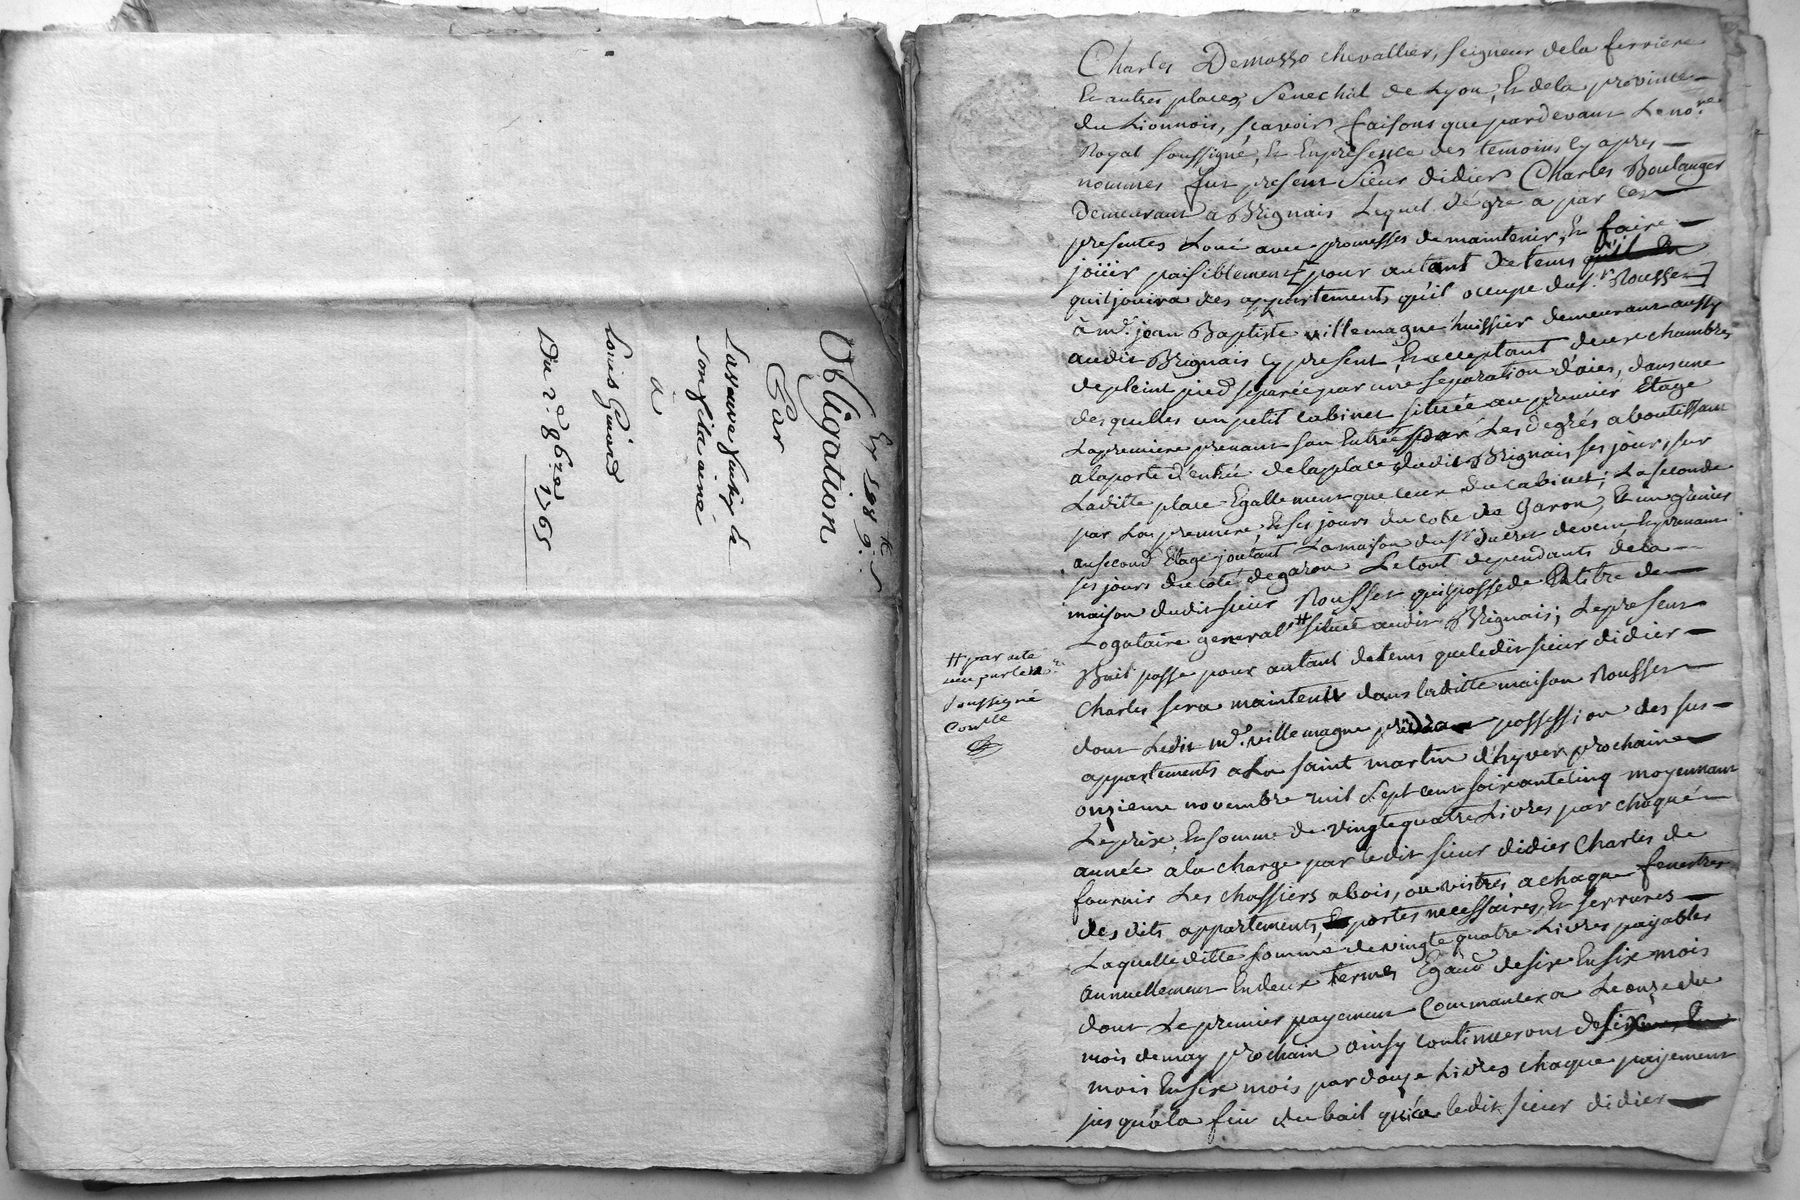 Obligation
Par
La veuve
son fils ainé
à
Louis
Du 2e. 8bre 1765
Charles Demasso chevallier, seigneur dela ferriere
Et autres places, Senechal de Lyon, Et dela province
du Lionnois, sçavoir faisons que pardevant Le nore.
Royal soussigné, Et En presence des temoins cy apres
nommés fut present sieur didier Charles Boulanger
Demeurant a Brignais Lequel de gre a par ces
presentes Loué avec promesses de maintenir, Et faire
joüir paisiblement [pour autant de tems
quil jouira des appartements qu'il occupe du sr. Rousset]
à me. jean Baptiste villemagne huissier demeurant aussy
audit Brignais Cy present, Et acceptant deux chambres
de pleint pied separée par une separation d'aies, dans une
des quelles un petit cabinet située au premier Etage
La premiere prenant son Entrée par Les degrés aboutissant
a la porte d'entrée de la place dudit Brignais ses jours sur
Laditte place Egallement que ceux du cabinet; La seconde
par La premiere, Et ses jours du coté de Garon, Et un grenier
au second Etage joutant La maison du sr. prenant
ses jours du coté de garon Le tout dependants de la
maison dudit sieur Rousset quil possede En titre de
Legataire general # située audit Brignais; Le present
Bail passé pour autant de tems que ledit sieur didier
Charles sera maintenu dans laditte maison Rousset
dont Ledit me. villemagne prendra possession des sus
appartements a La saint martin d'hyver prochaine
onzieme novembre mil sept cent soixante cinq moyennant
Le prix En somme de vingt quatre Livres par chaque
année a la charge par ledit sieur didier Charles de
fournir Les chassiers a bois, ou vistres a chaque fenestres
des dits appartements, portes necessaires, Et serrures
Laquelle ditte somme de vingt quatre Livres payables
annuellement En deux termes Egaux de six En six mois
dont Le premier payement Commancera Le onze du
mois de may prochain ainsy continueront de six
mois En six mois par douze Livres chaque payement
jusqu'a la fin du bail qu'a ledit sieur didier
# par acte
reçu par le nre.
soussigné